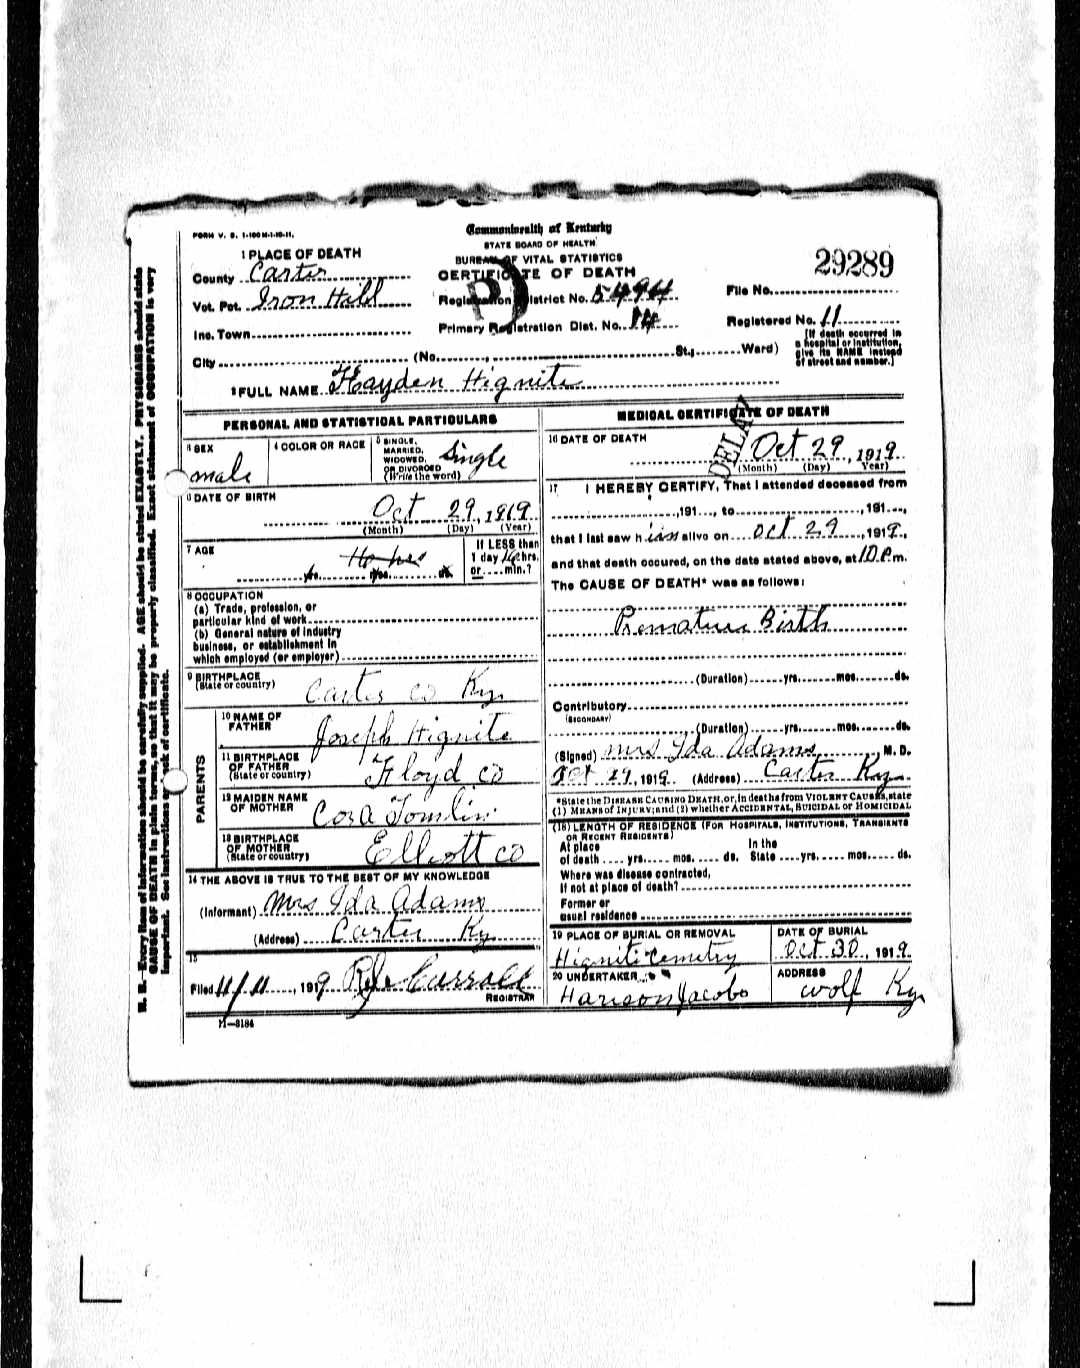 FORM V. S. 1-100M-1-10-11.
Commonwealth of Kentucky
STATE BOARD OF HEALTH
BUREAU OF VITAL STATISTICS
CERTIFICATE OF DEATH
29289
1 PLACE OF DEATH
County Carter
Vot. Pct. Iron Hill
Inc. Town
City (No. , St.; Ward)
Registration District No. 5494
Primary Registration Dist. No. 14
File No.
Registered No. 11
[If death occurred in
a hospital or institution,
give its NAME instead
of street and number.]
2 FULL NAME Hayden Hignite
PERSONAL AND STATISTICAL PARTICULARS
3 SEX
male
4 COLOR OR RACE
5 SINGLE,
MARRIED,
WIDOWED,
OR DIVORCED
(Write the word)
Single
6 DATE OF BIRTH
Oct 29, 1919
(Month) (Day) (Year)
7 AGE
If LESS than
1 day hrs.
or min.?
yrs. mos. ds.
8 OCCUPATION
(a) Trade, profession, or
particular kind of work
(b) General nature of industry
business, or establishment in
which employed (or employer)
9 BIRTHPLACE
(State or country)
Carter Co Ky
PARENTS
10 NAME OF
FATHER
Joseph Hignite
11 BIRTHPLACE
OF FATHER
(State or country)
Floyd Co
12 MAIDEN NAME
OF MOTHER
Cora Tomlin
13 BIRTHPLACE
OF MOTHER
(State or country)
Elliott Co
14 THE ABOVE IS TRUE TO THE BEST OF MY KNOWLEDGE
(Informant) Mrs Ida Adams
(Address) Carter Ky
15
Filed 11/11, 1919 Carroll
REGISTRAR
11-3184
MEDICAL CERTIFICATE OF DEATH
DELAY
16 DATE OF DEATH
Oct 29, 1919
(Month) (Day) (Year)
17 I HEREBY CERTIFY, That I attended deceased from
, 191 , to , 191 ,
that I last saw him alive on Oct 29, 1919,
and that death occured, on the date stated above, at 10 P.m.
The CAUSE OF DEATH* was as follows:
Premature Birth
(Duration) yrs. mos. ds.
Contributory
(SECONDARY)
(Duration) yrs. mos. ds.
(Signed) Mrs Ida Adams, M. D.
Oct 29, 1919. (Address) Carter Ky
*State the DISEASE CAUSING DEATH, or, in deaths from VIOLENT CAUSES, state
(1) MEANS of INJURY; and (2) whether ACCIDENTAL, SUICIDAL OR HOMICIDAL
(18) LENGTH OF RESIDENCE (FOR HOSPITALS, INSTITUTIONS, TRANSIENTS
OR RECENT RESIDENTS)
At place In the
of death yrs. mos. ds. State yrs. mos. ds.
Where was disease contracted,
if not at place of death?
Former or
usual residence
19 PLACE OF BURIAL OR REMOVAL
Hignite Cemetry
DATE OF BURIAL
Oct 30, 1919
20 UNDERTAKER
Harison Jacobs
ADDRESS
Wolf Ky
N. B.—Every item of information should be carefully supplied. AGE should be stated EXACTLY. PHYSICIANS should state
CAUSE OF DEATH in plain terms, so that it may be properly classified. Exact statement of OCCUPATION is very
important. See instructions on back of certificate.